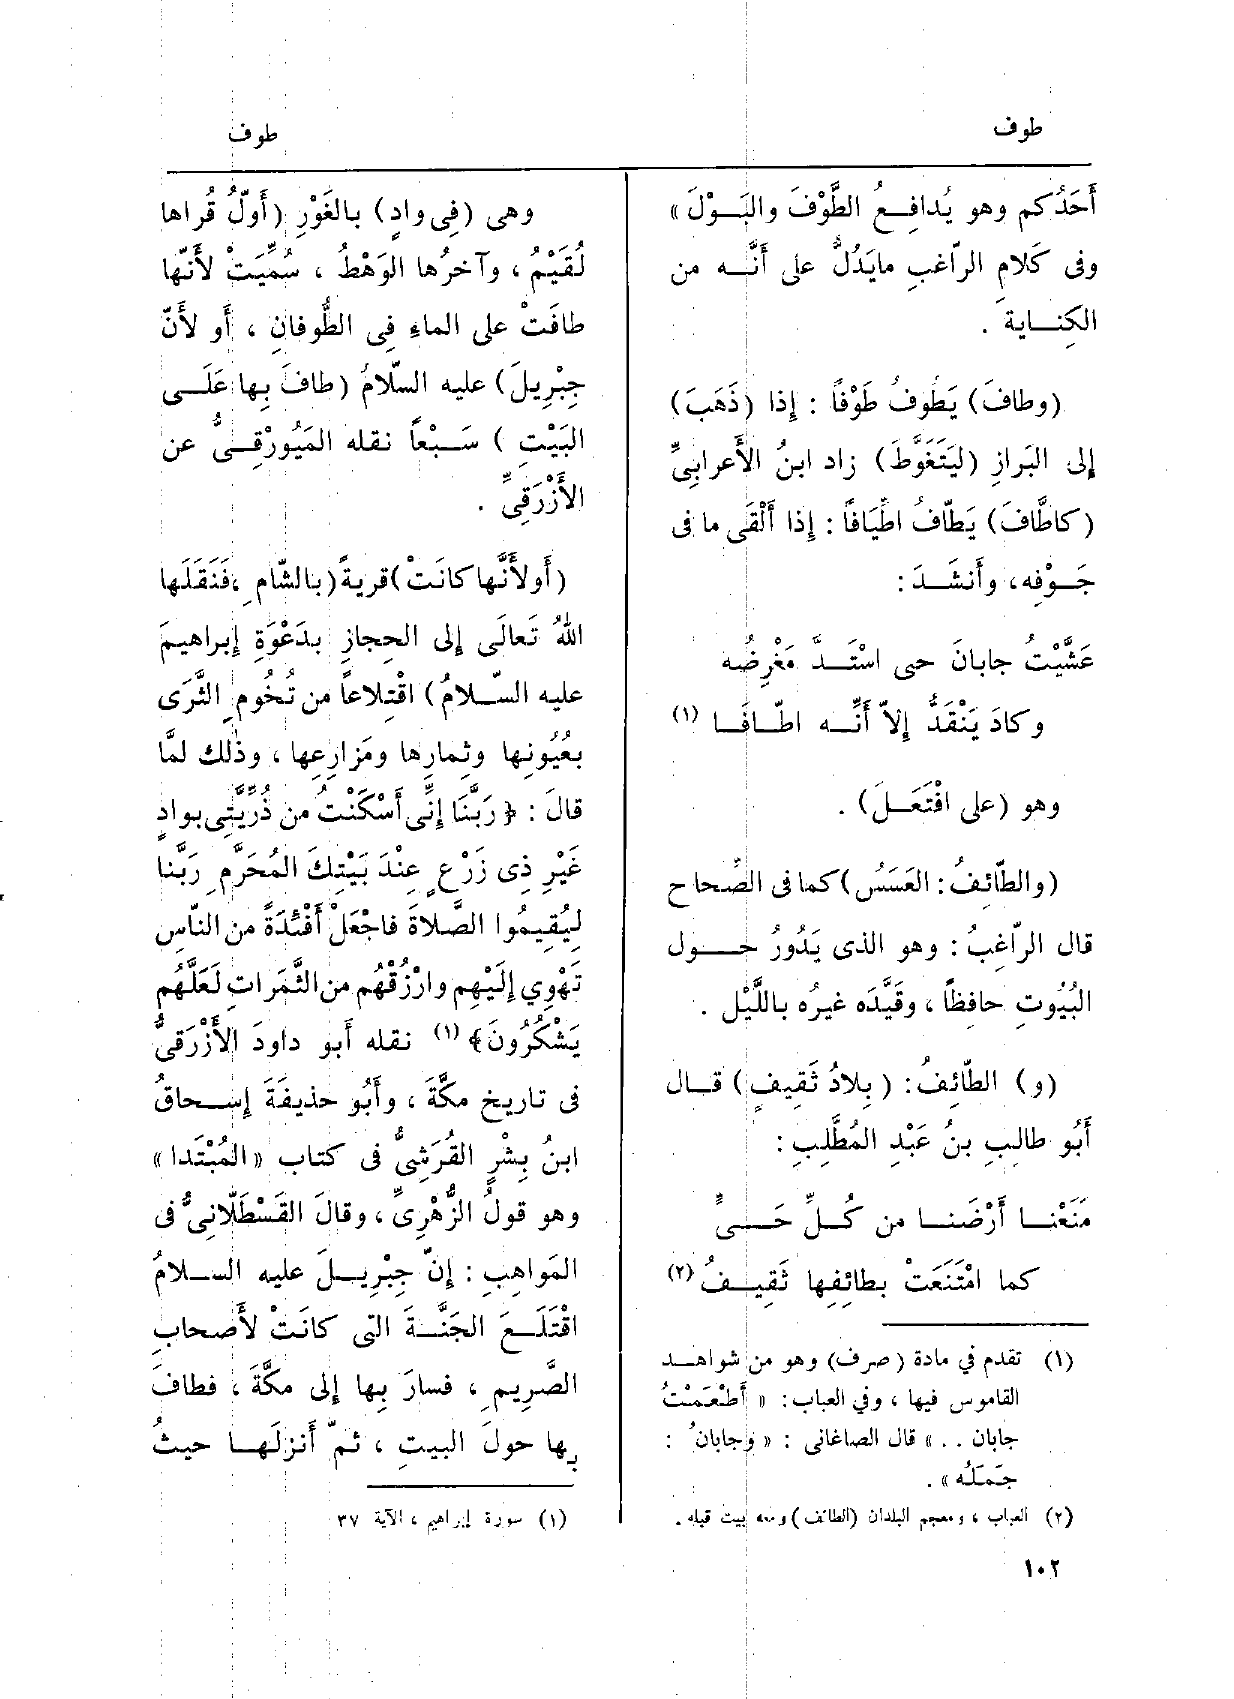 طوف
طوف
أَحَدُكم وهو يُدافِـعُ الطَّوْفَ والبَـوْلَ »
وفى كَلامِ الرّاغبِ مايَدُلُّ على أَنَّـه من
الكِنـايةِ .
(وطافَ) يَطُوفُ طَوْفاً : إذا (ذَهَبَ)
إلى البَرازِ (ليَتَغَوَّطَ) زاد ابنُ الأَعرابِىِّ
(كاطَّافَ) يَطّافُ اطِّيَافاً : إذا أَلْقَى ما فى
جَـوْفِه، وأَنشَـدَ :
عَشَّيْتُ جابانَ حتى اسْتَـدَّ مَغْرِضُه
وكادَ يَنْقَدُّ إلاّ أَنَّـه اطّـافَـا (١)
وهو (على افْتَعَـلَ) .
(والطّائِفُ : العَسَسُ) كما فى الصِّحاحِ
قال الرّاغبُ : وهو الذى يَدُورُ حـول
البُيُوتِ حافِظاً ، وقَيَّدَه غيرُه باللَّيْلِ .
(و) الطّائِفُ : (بِلادُ ثَقِيفٍ) قـال
أَبُو طالِبِ بنُ عَبْدِ المُطَّلِبِ :
مَنَعْنـا أَرْضَنـا من كُـلِّ حَـىٍّ
كما امْتَنَعَتْ بطائِفِها ثَقِيـفُ (٢)
(١) تقدم في مادة (صرف) وهو من شواهـد
القاموس فيها ، وفي العباب : « أَطْعَمْتُ
جابان . . » قال الصاغانى : « وجابانُ :
جَمَلُه » .
(٢) العباب ، ومعجم البلدان (الطائف) ومعه بيت قبله .
١٠٢
وهى (فِى وادٍ) بالغَوْرِ (أَوّلُ قُراها
لُقَيْمُ ، وآخرُها الوَهْطُ ، سُمِّيَتْ لأَنّها
طافَتْ على الماءِ فِى الطُّوفانِ ، أَو لأَنّ
جِبْرِيلَ) عليه السّلامُ (طافَ بِها عَلَـى
البَيْتِ ) سَـبْعاً نقله المَيُورْقِـىُّ عن
الأَزْرَقِىِّ .
(أَو لأَنَّها كانَتْ) قريةً (بالشَّامِ ، فَنَقَلَها
اللهُ تَعالَى إلى الحِجازِ بدَعْوَةِ إبراهيمَ
عليه السّـلامُ) اقْتِلاعاً من تُخُومِ الثَّرَى
بعُيُونِها وثِمارِها ومَزارِعِها ، وذٰلك لمَّا
قالَ : ﴿ رَبَّنَا إنِّى أَسْكَنْتُ من ذُرِّيَّتِى بوادٍ
غَيْرِ ذِى زَرْعٍ عِنْدَ بَيْتِكَ المُحَرَّمِ رَبَّنا
لِيُقِيمُوا الصَّلاةَ فاجْعَلْ أَفْئِدَةً من النّاسِ
تَهْوِي إلَيْهِم وارْزُقْهُم من الثَّمَراتِ لَعَلَّهُم
يَشْكُرُونَ ﴾ (١) نقله أَبو داودَ الأَزْرَقىُّ
فى تاريخِ مكّةَ ، وأَبُو حذيفَةَ إسـحاقُ
ابنُ بِشْرٍ القُرَشِىُّ فى كتاب «المُبْتَدا»
وهو قولُ الزُّهْرِىِّ ، وقالَ القَسْطَلّانِىُّ فى
المَواهِبِ : إنّ جِبْرِيـلَ عليه السـلامُ
اقْتَلَـعَ الجَنَّـةَ التى كانَتْ لأَصحابِ
الصَّرِيمِ ، فسارَ بِها إلى مكّةَ ، فطافَ
بِها حولَ البيتِ ، ثمّ أَنزلَهـا حيثُ
(١) سورة إبراهيم ، الآية ٣٧